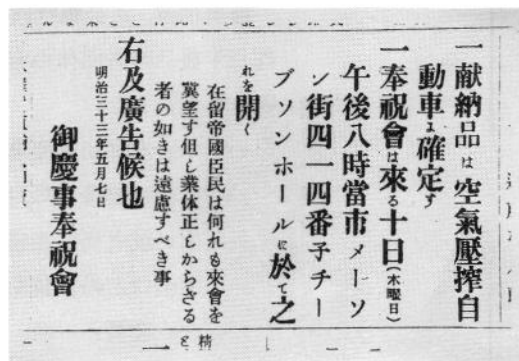 一献納品は空氣壓搾自
動車に確定す
一奉祝會は來る十日(木曜日)
午後八時當市メーソ
ン街四一四番子チー
ブソンホールに於て之
れを開く
在留帝國臣民は何れも來會を
冀望す但し業体正しからざる
者の如きは遠慮すべき事
右及廣告候也
明治三十三年五月七日
御慶事奉祝會